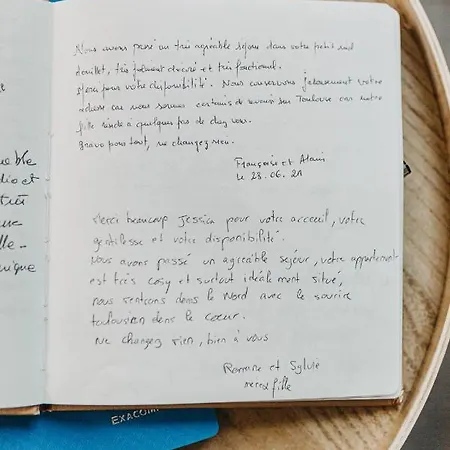 Nous avons passé un très agréable séjour dans votre petit nid
douillet, très joliment décoré et très fonctionnel.
Merci pour votre disponibilité. Nous conservons jalousement votre
adresse car nous sommes certains de revenir sur Toulouse car notre
fille réside à quelques pas de chez vous.
Bravo pour tout, ne changez rien.
Françoise et Alain
le 28.06.21
Merci beaucoup Jessica pour votre accueil, votre
gentillesse et votre disponibilité.
Nous avons passé un agréable séjour, votre appartement
est très cosy et surtout idéalement situé,
nous rentrons dans le Nord avec le sourire
toulousain dans le cœur.
Ne changez rien, bien à vous
et Sylvie
mère fille
EXACOM